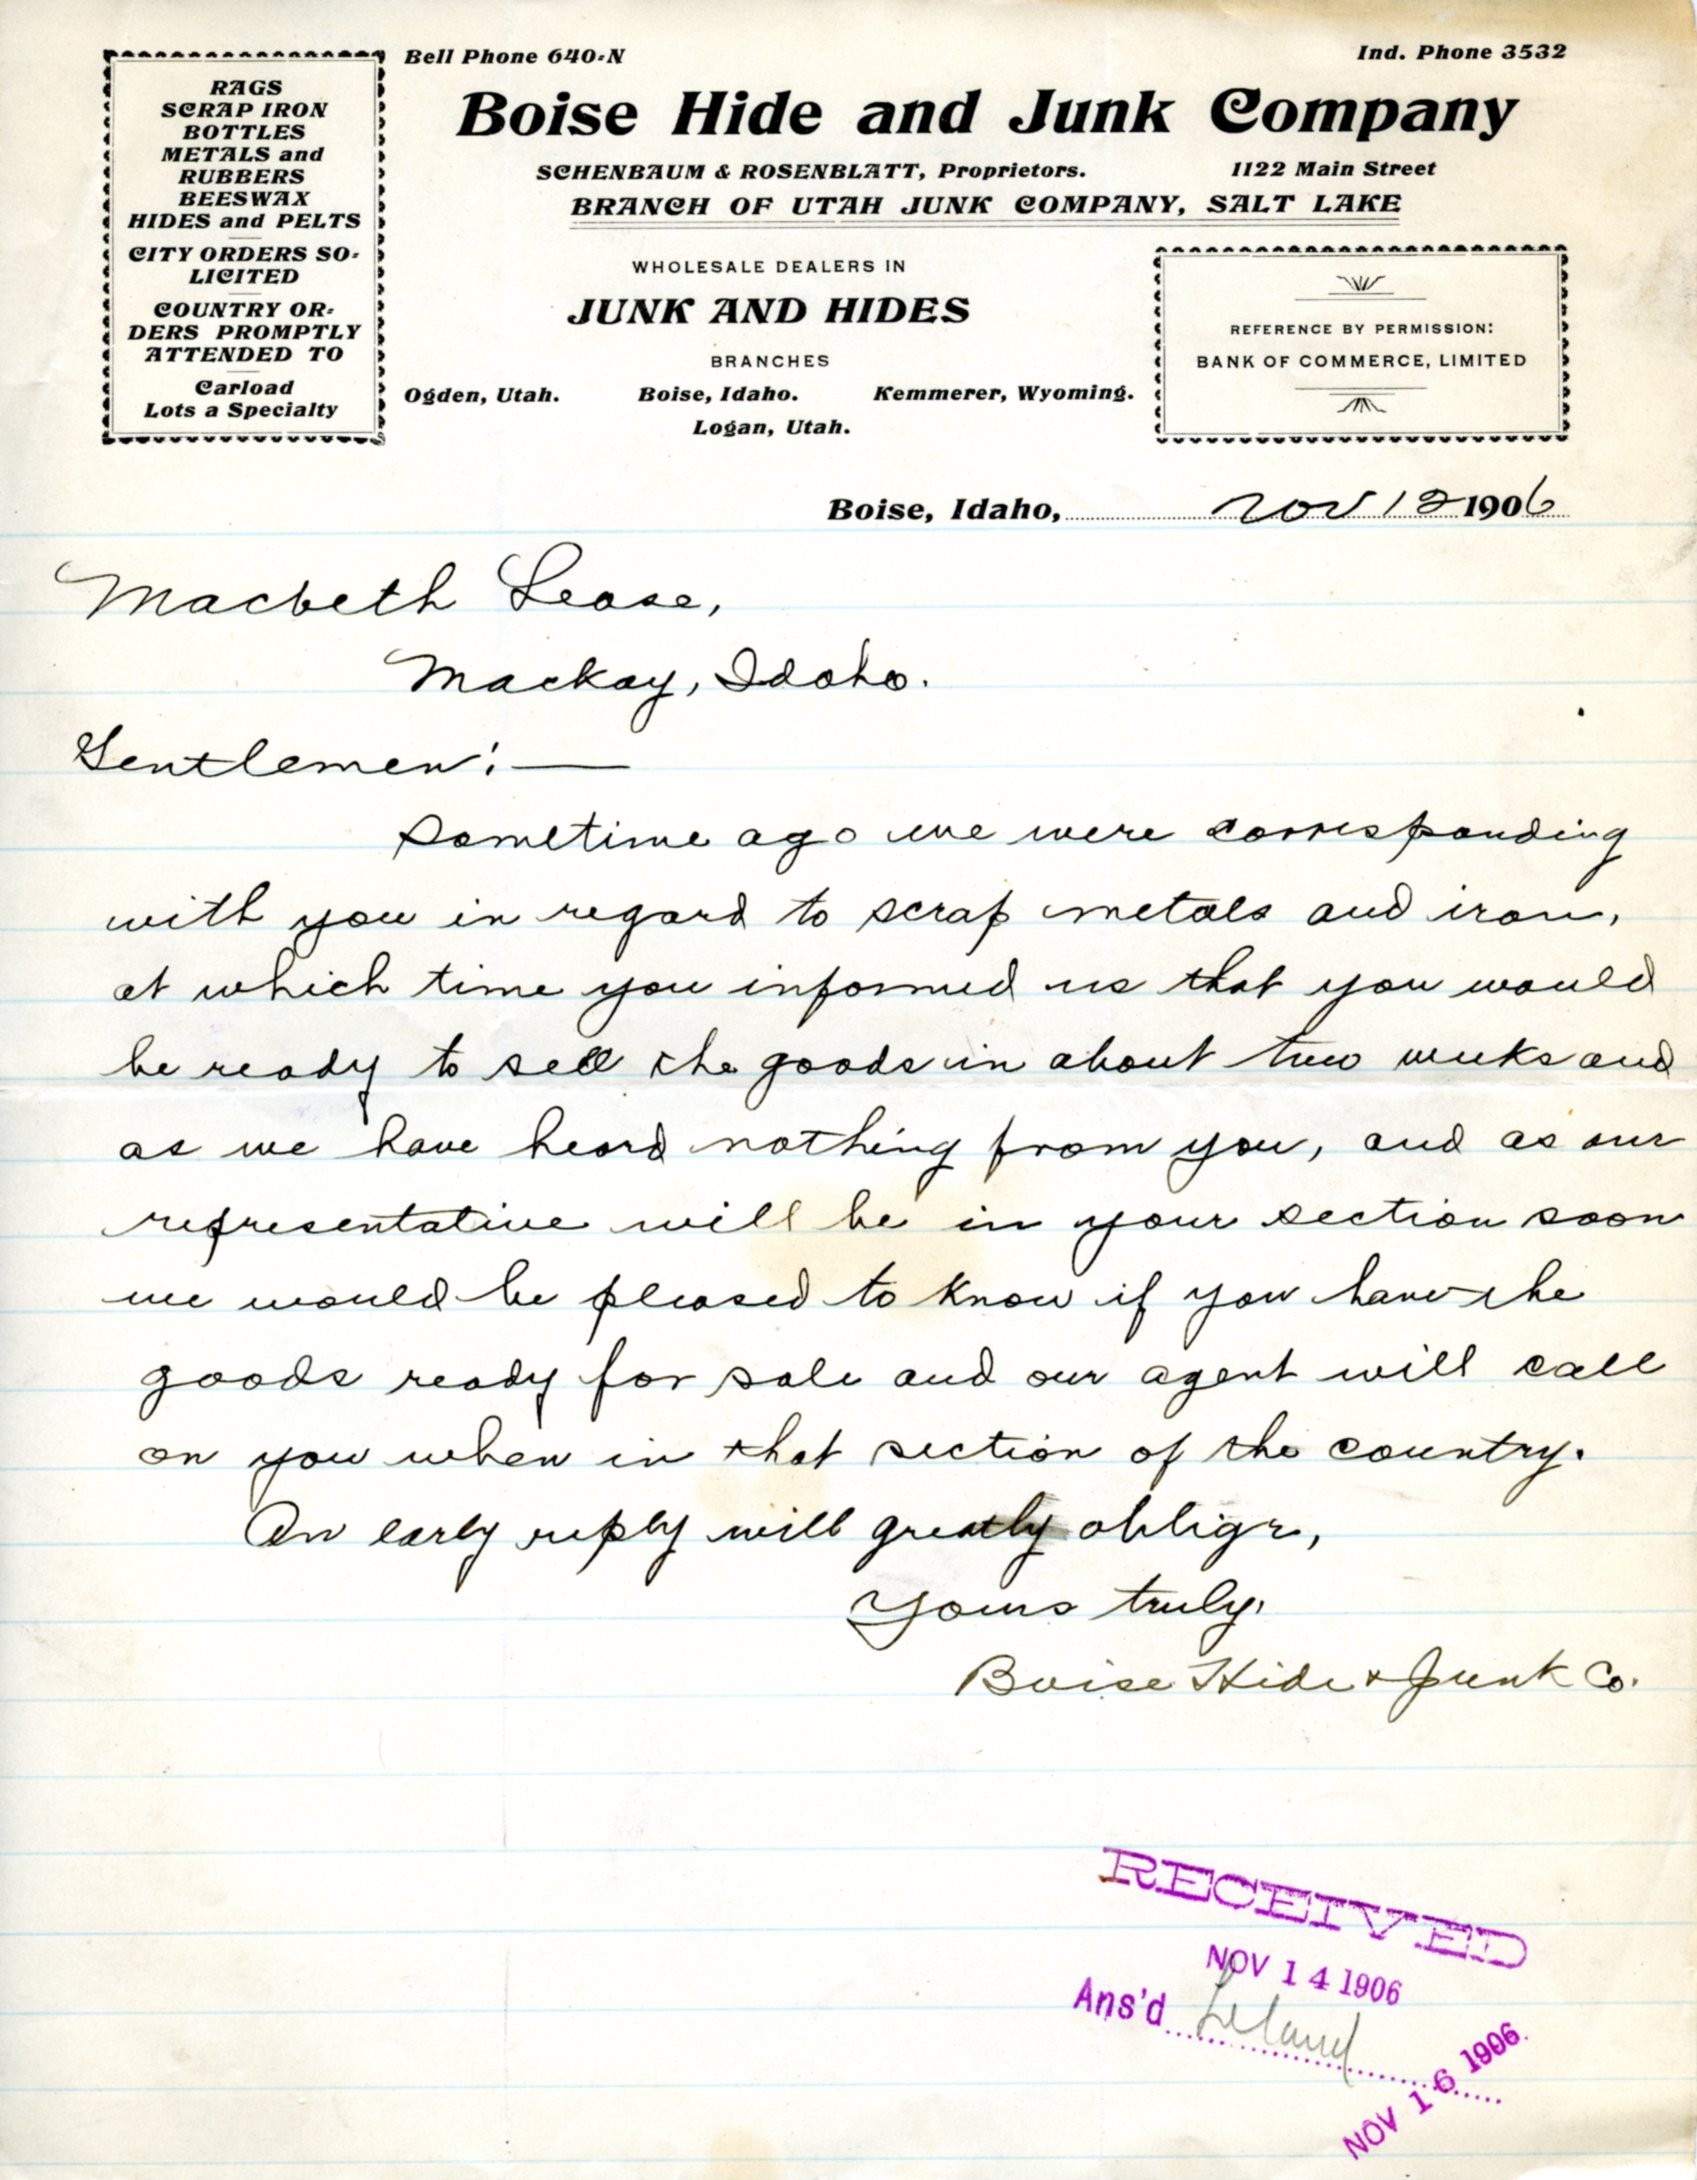 RAGS
SCRAP IRON
BOTTLES
METALS and
RUBBERS
BEESWAX
HIDES and PELTS
CITY ORDERS SO-
LICITED
COUNTRY OR-
DERS PROMPTLY
ATTENDED TO
Carload
Lots a Specialty
Bell Phone 640-N
Ind. Phone 3532
Boise Hide and Junk Company
SCHENBAUM & ROSENBLATT, Proprietors.
1122 Main Street
BRANCH OF UTAH JUNK COMPANY, SALT LAKE
WHOLESALE DEALERS IN
JUNK AND HIDES
BRANCHES
Ogden, Utah. Boise, Idaho. Kemmerer, Wyoming.
Logan, Utah.
REFERENCE BY PERMISSION:
BANK OF COMMERCE, LIMITED
Boise, Idaho, Nov 12 1906
Macbeth Lease,
Mackay, Idaho.
Gentlemen:—
Sometime ago we were corresponding
with you in regard to scrap metals and iron,
at which time you informed us that you would
be ready to sell the goods in about two weeks and
as we have heard nothing from you, and as our
representative will be in your section soon
we would be pleased to know if you have the
goods ready for sale and our agent will call
on you when in that section of the country.
An early reply will greatly oblige,
Yours truly,
Boise Hide & Junk Co.
RECEIVED
NOV 14 1906
Ans'd Leland
NOV 16 1906